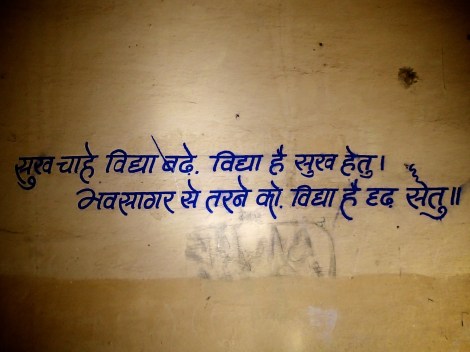 सुख चाहे विद्या बढ़े. विद्या है सुख हेतु।
भवसागर से तरने को, विद्या है दृढ़ सेतु॥